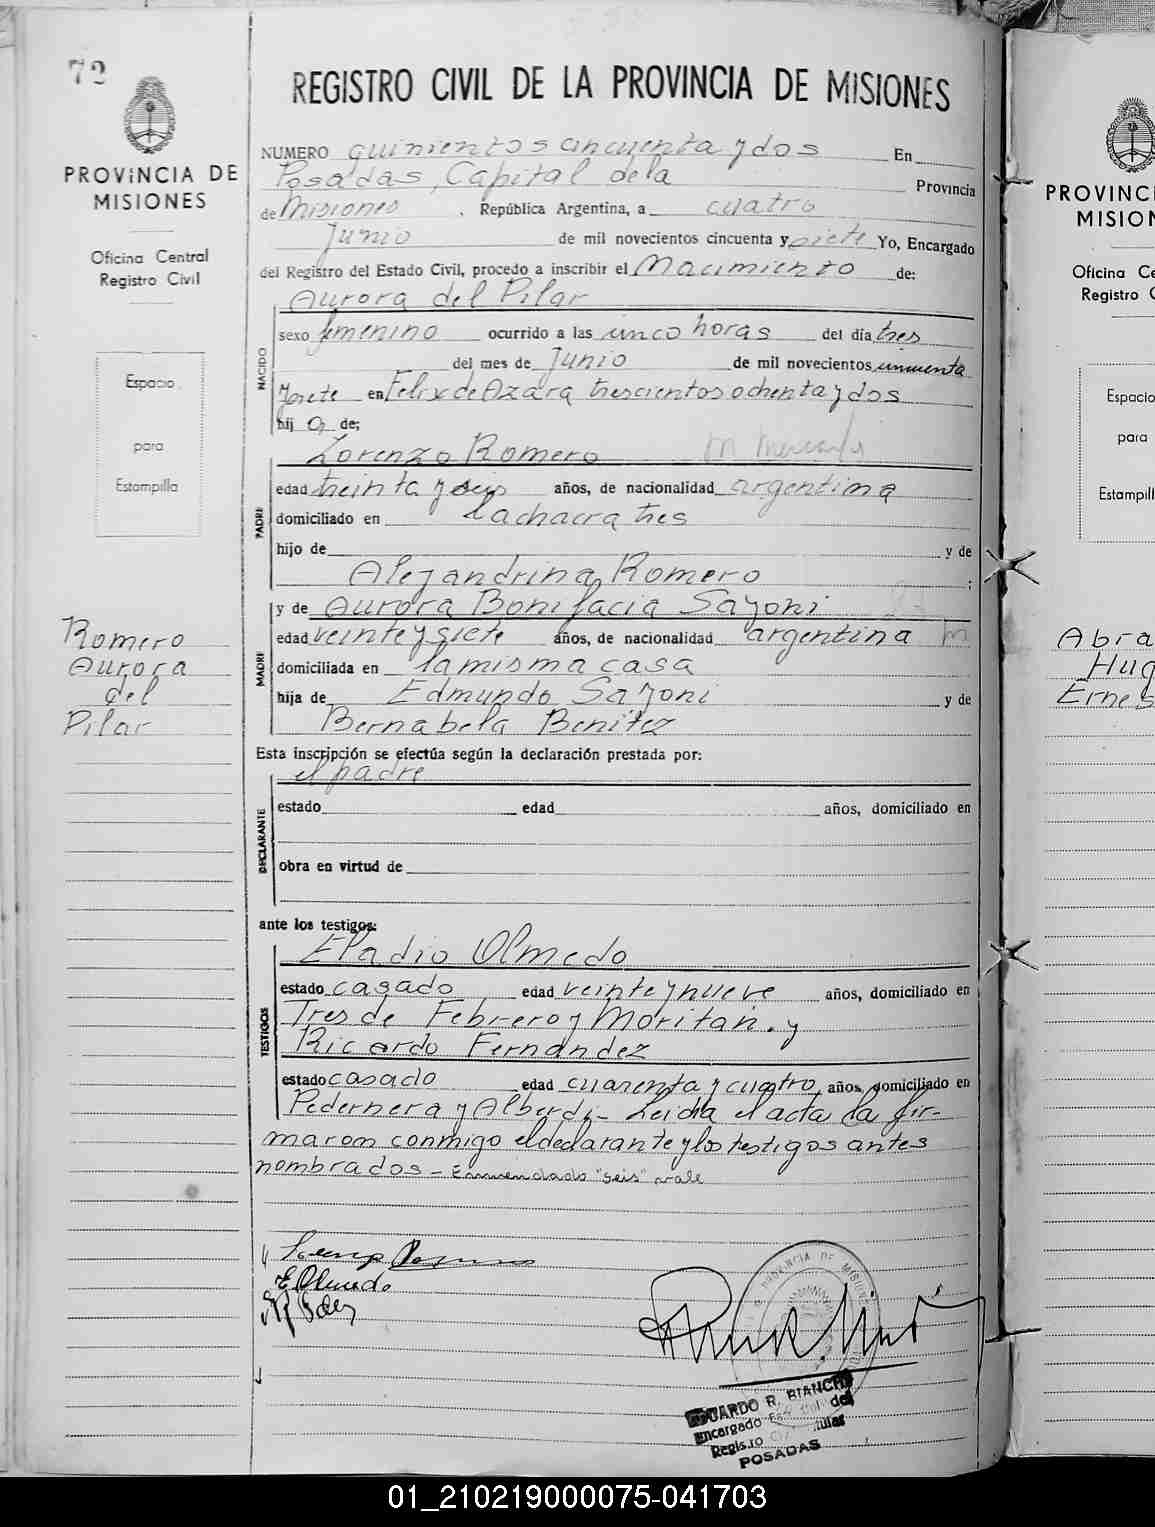 72
PROVINCIA DE
MISIONES
Oficina Central
Registro Civil
Espacio
para
Estampilla
Romero
Aurora
del
Pilar
REGISTRO CIVIL DE LA PROVINCIA DE MISIONES
NUMERO quinientos cincuenta y dos En
Posadas, Capital de la Provincia
de Misiones, República Argentina, a cuatro
Junio de mil novecientos cincuenta y siete Yo, Encargado
del Registro del Estado Civil, procedo a inscribir el Nacimiento de:
Aurora del Pilar
NACIDO
sexo femenino ocurrido a las cinco horas del día tres
del mes de Junio de mil novecientos cincuenta
y siete en Felix de Azara trescientos ochenta y dos
hij a de;
Lorenzo Romero
PADRE
edad treinta y seis años, de nacionalidad argentina
domiciliado en la chacra tres
hijo de y de
Alejandrina Romero ;
y de Aurora Bonifacia Sayoni
MADRE
edad veinte y siete años, de nacionalidad argentina
domiciliada en la misma casa
hija de Edmundo Sayoni y de
Bernabela Benitez
Esta inscripción se efectúa según la declaración prestada por:
el padre
DECLARANTE
estado edad años, domiciliado en
obra en virtud de
ante los testigos:
Eladio Olmedo
TESTIGOS
estado casado edad veinte y nueve años, domiciliado en
Tres de Febrero y Moritán. y
Ricardo Fernandez
estado casado edad cuarenta y cuatro años, domiciliado en
Pedernera y Alberdi - Leida el acta la fir-
maron conmigo el declarante y los testigos antes
nombrados - Enmendado "seis" vale
E Olmedo
PROVINCIA DE MISIONES
EDUARDO R. BIANCHI
Encargado
Registro
POSADAS
PROVINCI
MISION
Oficina Ce
Registro C
Espacio
para
Estampill
Abra
Hug
Ernes
01_210219000075-041703